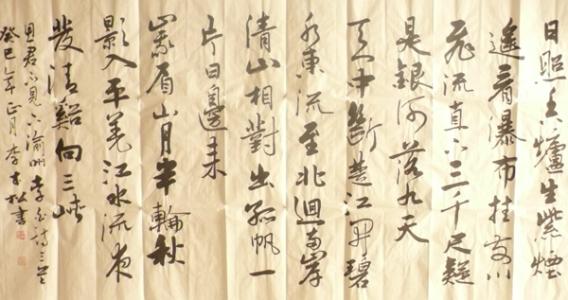 日照香爐生紫煙
遙看瀑布挂前川
飛流直下三千尺疑
是銀河落九天
天門中斷楚江開碧
水東流至北迴兩岸
清山相對出孤帆一
片日邊来
峨眉山月半輪秋
影入平羌江水流夜
發清谿向三峽
思君不見下渝州李白詩三首
癸巳年正月李 書